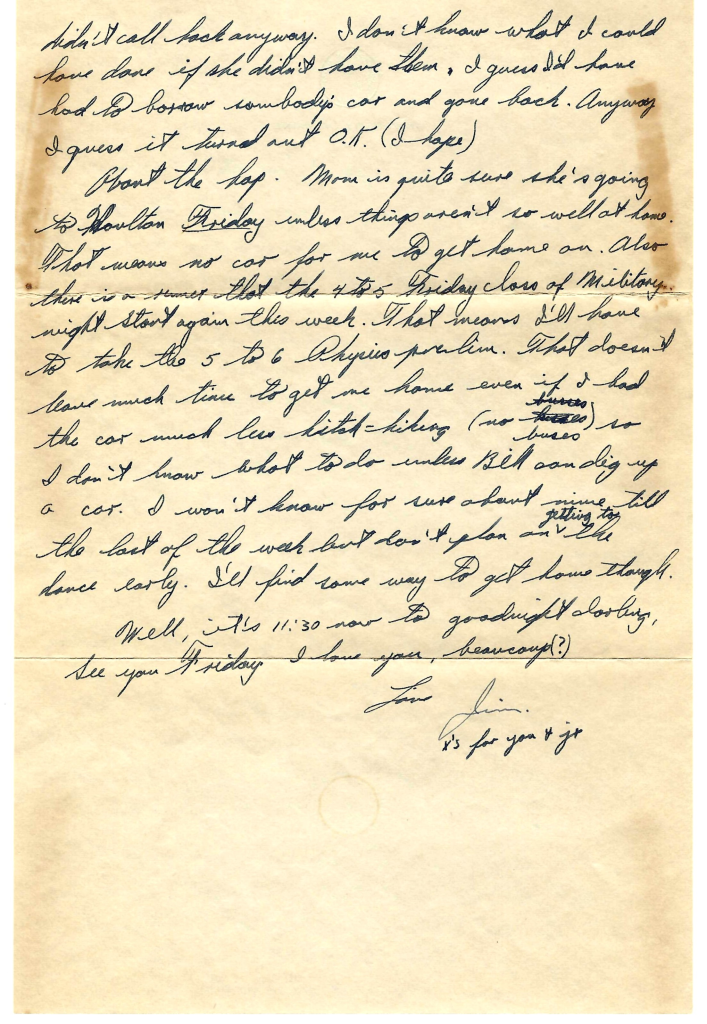 didn't call back anyway. I don't know what I could
have done if she didn't have them, I guess I'd have
had to borrow sombody's car and gone back. Anyway
I guess it turned out O.K. (I hope)
About the hop. Mom is quite sure she's going
to Houlton Friday unless things aren't so well at home.
That means no car for me to get home on. Also
there is a rumer that the 4 to 5 Friday class of Military
might start again this week. That means I'll have
to take the 5 to 6 Physics prelim. That doesn't
leave much time to get me home even if I had
buses
the car much less hitch-hiking (no busses) so
buses
I don't know what to do unless Bill can dig up
a car. I won't know for sure about mine till
getting to
the last of the week but don't plan on the
dance early. I'll find some way to get home though.
Well, it's 11:30 now to goodnight darling,
see you Friday I love you, beaucoup(?)
Love Jim.
x's for you & jr